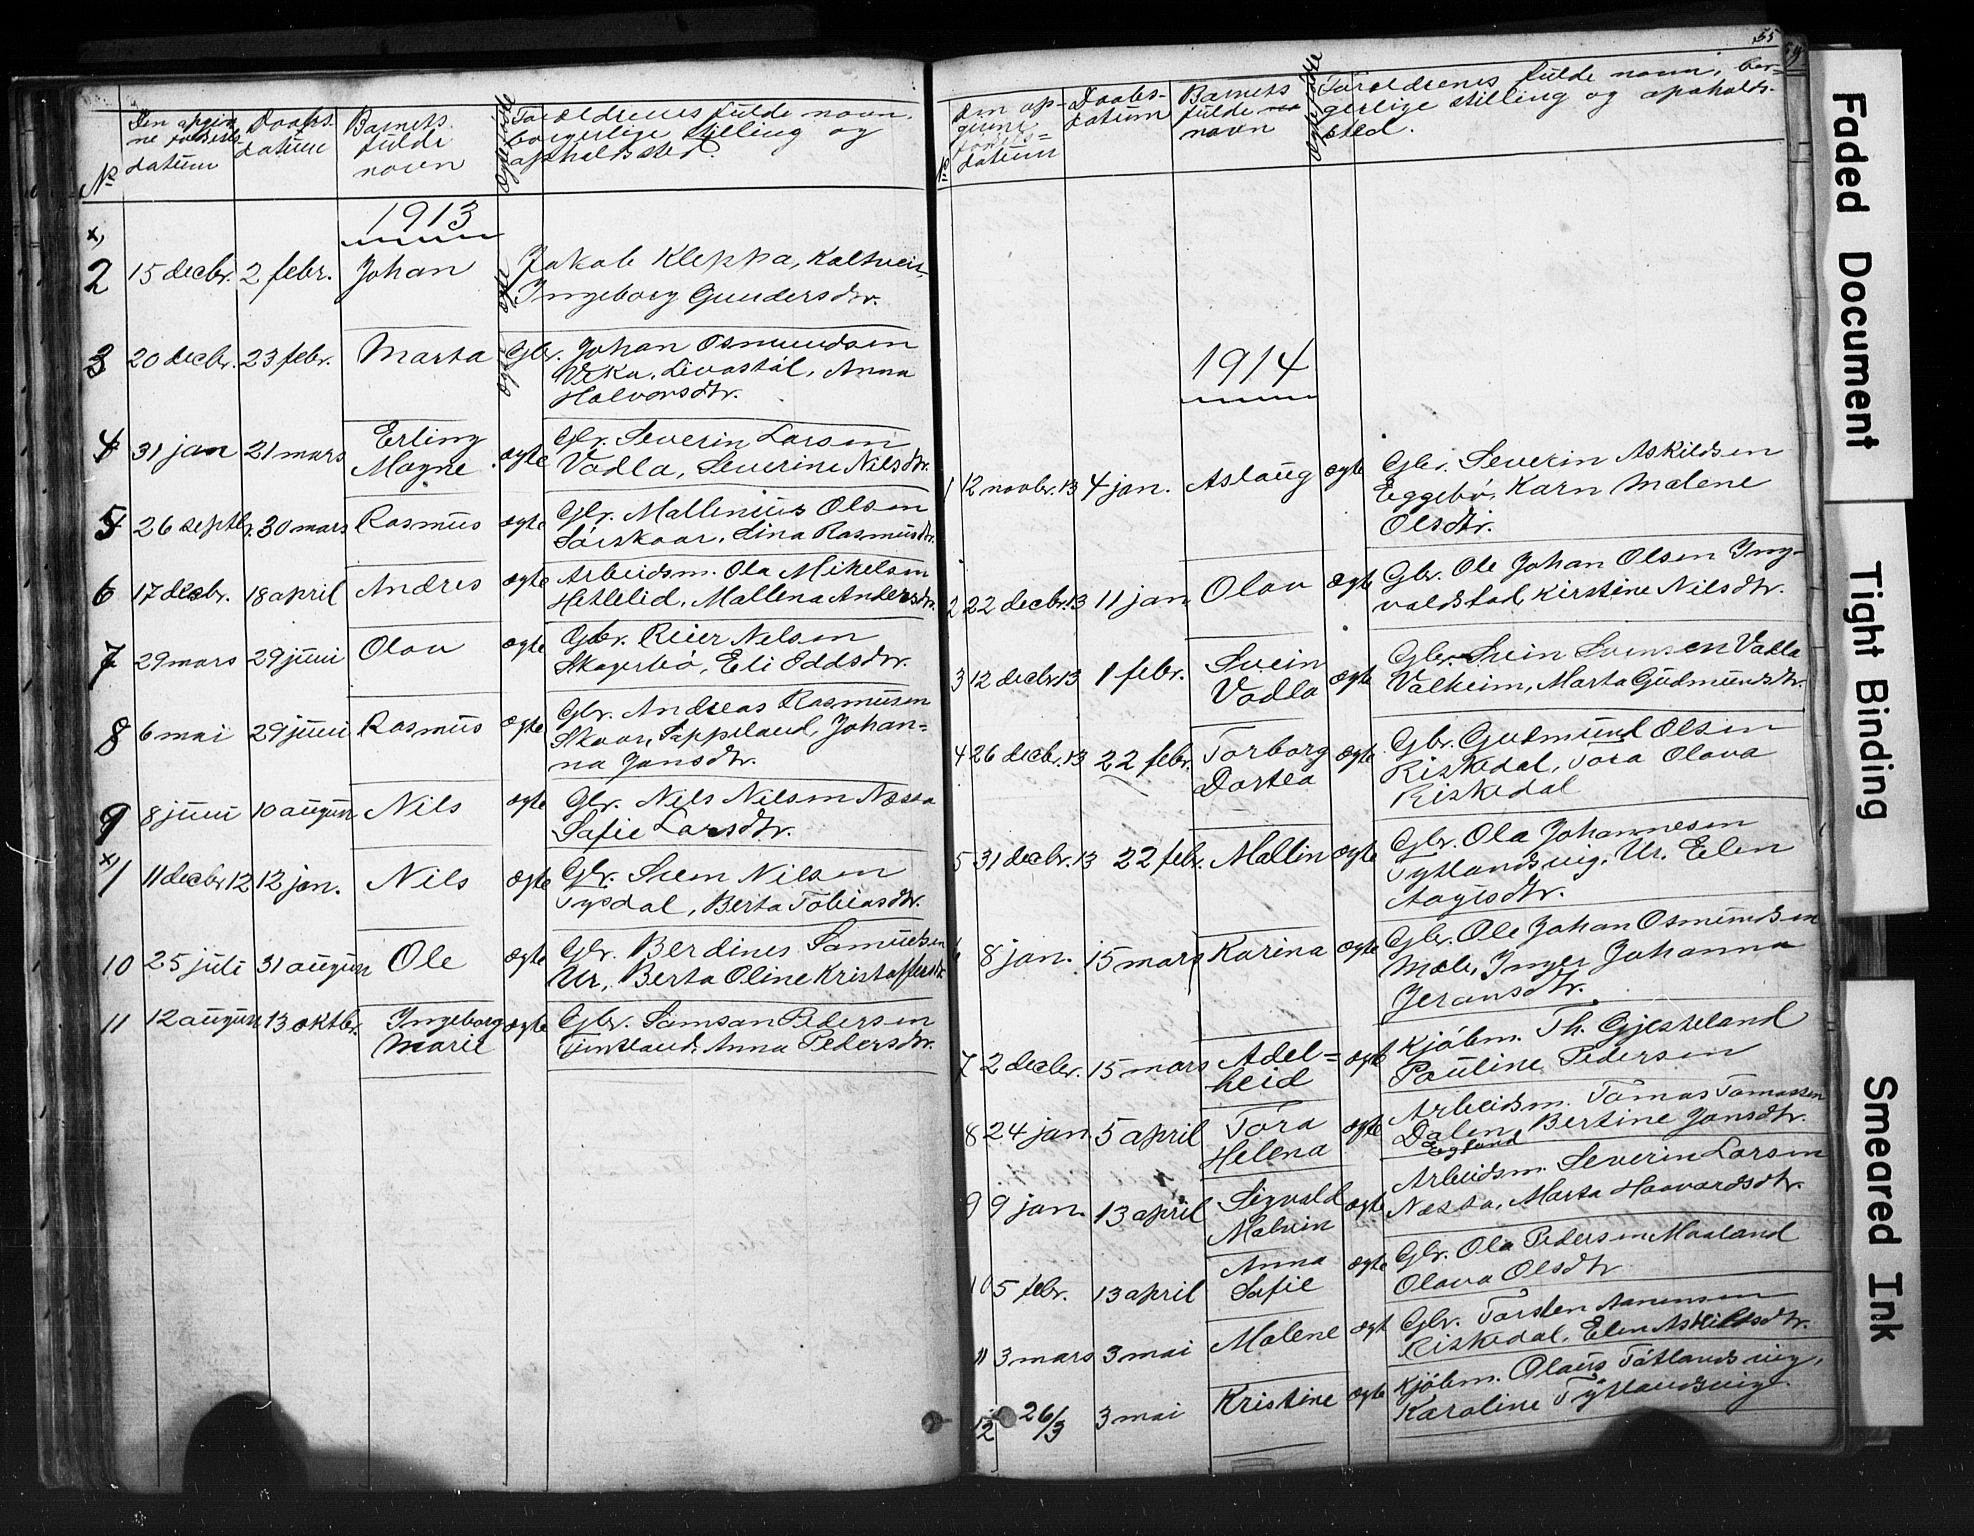 Den opgiv
ne fødsels
datum
Daabs-
datum
Barnets
fulde
navn
Forældrenes fulde navn,
borgerlige stilling og
opholdssted.
No
1913
x,
2 15 decbr. 2 febr. Johan ægte Jakob Kleppa, Kaltveit,
Ingeborg Gundersdtr.
3 20 decbr. 23 febr. Marta ægte Gbr. Johan Osmundsen
Veka, Livastøl, Anna
Halvorsdtr.
4 31 jan 21 mars Erling
Magne. ægte Gbr. Severin Larsen
Vadla, Severine Nilsdtr.
5 26 septbr. 30 mars Rasmus ægte Gbr. Mallinius Olsen
Sørskaar, Lina Rasmusdtr.
6 17 decbr. 18 april Andres ægte Arbeidsm. Ola Mikelsen
Hetlelid, Mallena Andersdtr.
7 29 mars 29 juni Olav ægte Gbr. Reier Nilsen
Skogerbø, Eli Oddsdtr.
8 6 mai 29 juni Rasmus ægte Gbr. Andreas Rasmusen
Skaar, Tappeland, Johan=
na Jonsdtr.
9 8 juni 10 august Nils ægte Gbr. Nils Nilsen Næssa
Sofie Larsdtr.
x, 1 11 decbr 12 12 jan. Nils ægte Gbr. Svein Nilsen
Tysdal, Berta Tobiasdtr.
10 25 juli 31 august Ole ægte Gbr. Berdines Samuelsen
Ur, Berta Oline Kristoffersdtr
11 12 august 13 oktbr. Ingeborg
Marie ægte Gbr. Samson Pedersen
Fintland, Anna Pedersdtr.
55
No
Den op-
givne
fødsels=
datum
Daabs-
datum
Barnets
fulde
navn
Forældrenes fulde navn, bor=
gerlige stilling og opholds-
sted.
1914
1 12 novbr. 13 4 jan. Aslaug ægte Gbr. Severin Askildsen
Eggebø, Karn Malene
Olsdtr.
2 22 decbr. 13 11 jan Olav ægte Gbr. Ole Johan Olsen Ing-
valdstad, Kirstine Nilsdtr.
3 12 decbr. 13 1 febr. Svein
Vadla ægte Gbr. Svein Svensen Vadla
Valheim, Marta Gudmundsdtr.
4 26 decbr. 13 22 febr. Torborg
Dortea ægte Gbr. Gudmund Olsen
Riskedal, Tora Olava
Riskedal
5 31 decbr. 13 22 febr. Mallin ægte Gbr. Ola Johannesen
Tytlandsvig, Ur, Elen
Aagesdtr.
6 8 jan. 15 mars Karina ægte Gbr. Ole Johan Osmundsen
Mæle, Inger Johanna
Jeransdtr.
7 2 decbr. 15 mars Adel=
heid ægte Kjøbm. Th. Gjesteland
Pauline Pedersen
8 24 jan. 5 april Tora
Helena ægte Arbeidsm. Tomas Tomassen
Dalen, Bertine Jonsdtr.
Egland
9 9 jan. 13 april Sigvald
Malvin ægte Arbeidsm. Severin Larsen
Næssa, Marta Haavardsdtr.
10 5 febr. 13 april Anna
Sofie ægte Gbr. Ola Pedersen Maaland
Olava Olsdtr
11 3 mars 3 mai Malene ægt Gbr. Torsten Aanensen
Riskedal, Elen Askildsdtr.
12 26/3 3 mai Kristine ægte Kjøbm. Olaus Tøtlandsvig,
Karoline Tytlandsvig
Faded Document
Tight Binding
Smeared Ink